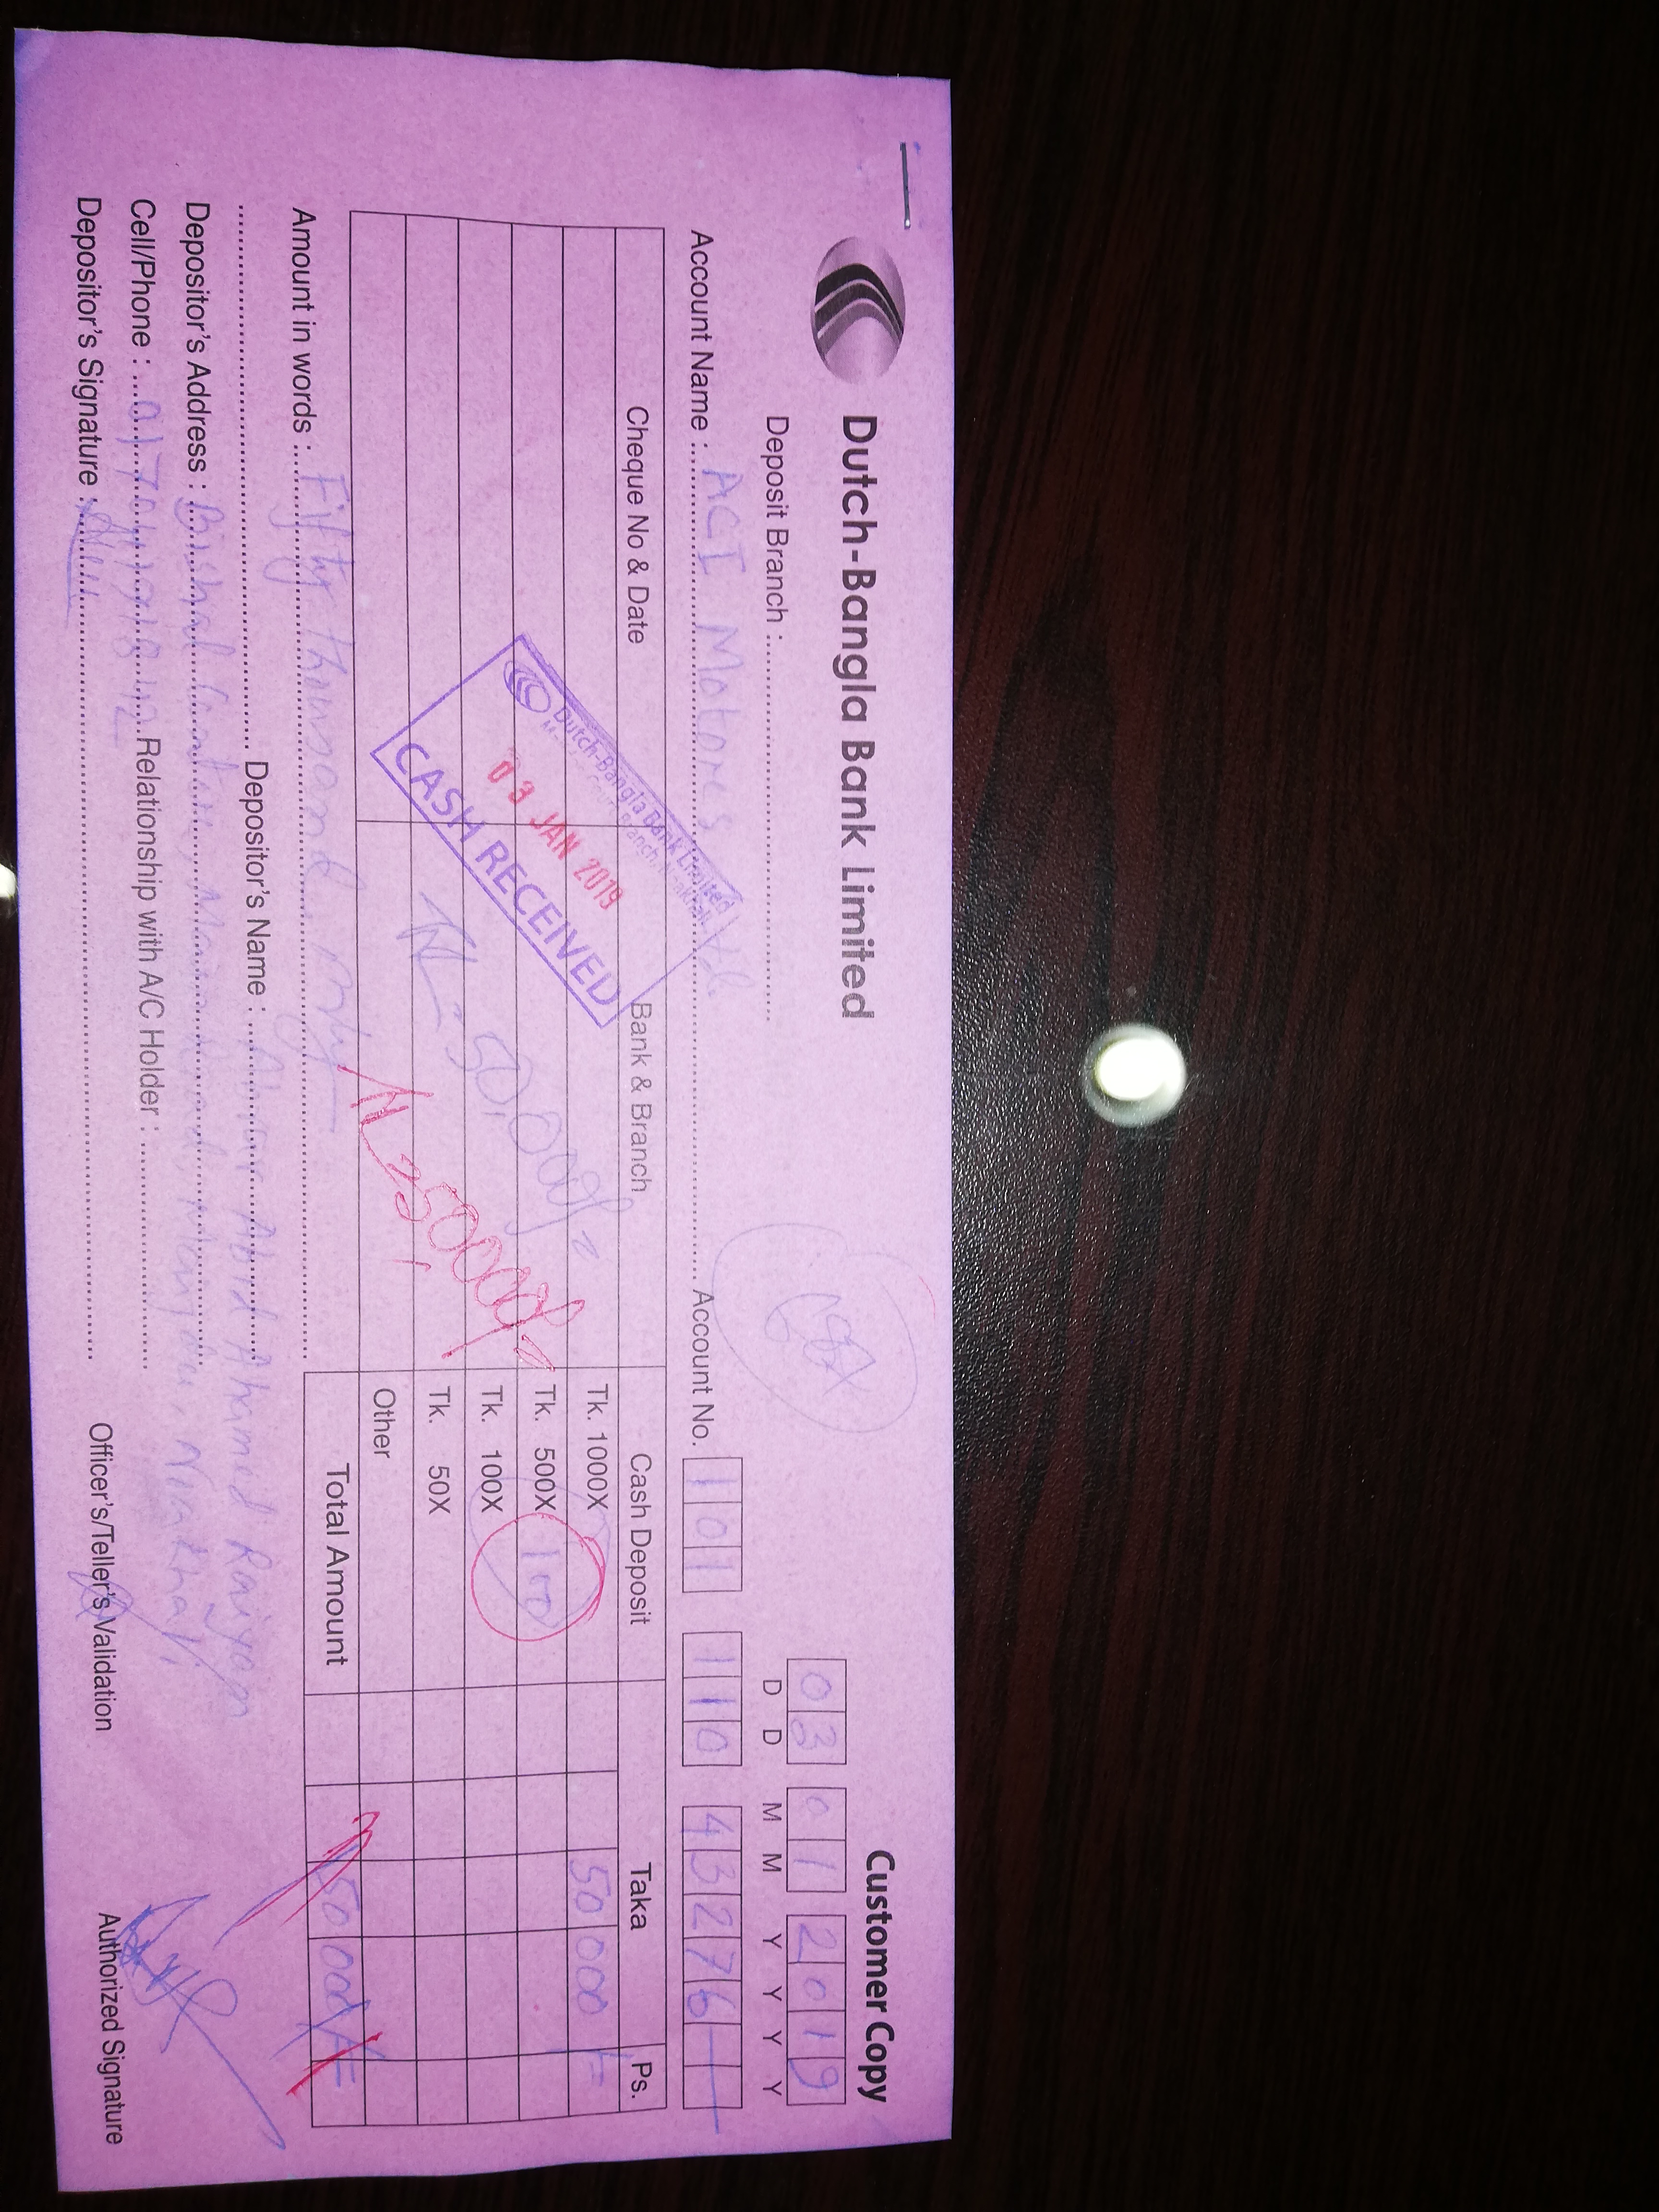 Customer Copy
Dutch-Bangla Bank Limited
03 01 2019
Deposit Branch :
D D M M Y Y Y Y
Account Name : ACI Motores Ltd. Account No. 101 110 43276
Cheque No & Date Bank & Branch Cash Deposit Taka Ps.
Tk. 1000X 50 000 /=
Tk. 500X 100
Tk. 100X
Tk. 50X
Other
Total Amount 50 000/=
Dutch-Bangla Bank Limited
03 JAN 2019
CASH RECEIVED
50,000/=
50000/=
Amount in words : Fifty thousand only
Depositor's Name : Abid Ahamed Raiyan
Depositor's Address : Bishal Noakhali
Cell/Phone : Relationship with A/C Holder :
Depositor's Signature :
Officer's/Teller's Validation
Authorized Signature